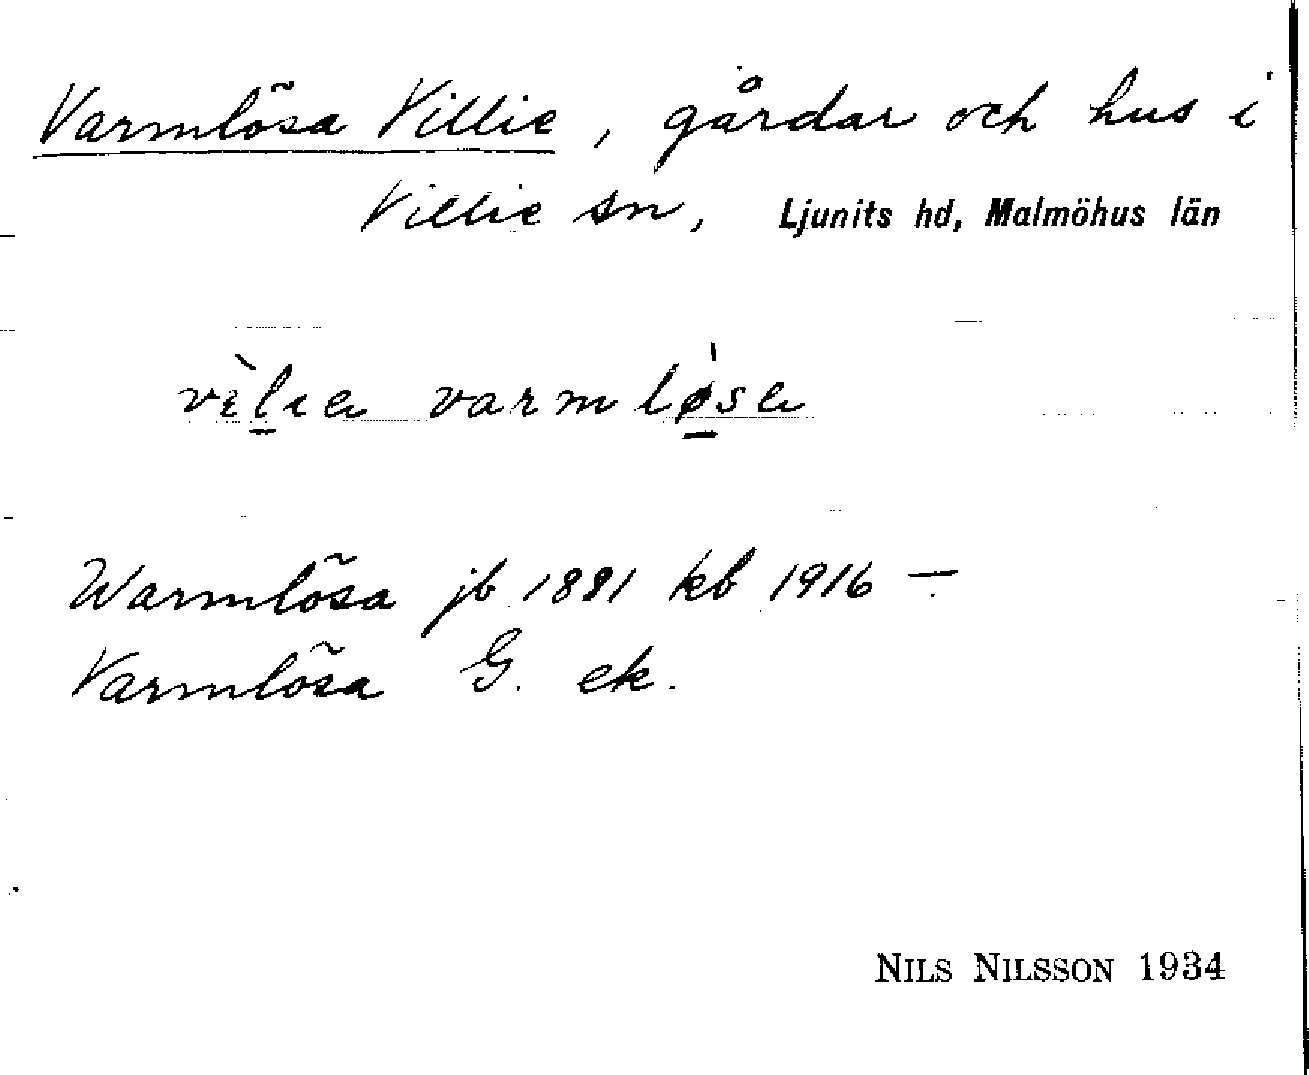 Varmlösa Villie, gårdar och hus i
Villie sn, Ljunits hd, Malmöhus län
vìlıa varmløsa
Warmlösa jb 1881 kb 1916 —
Varmlösa G. ek.
NILS NILSSON 1934